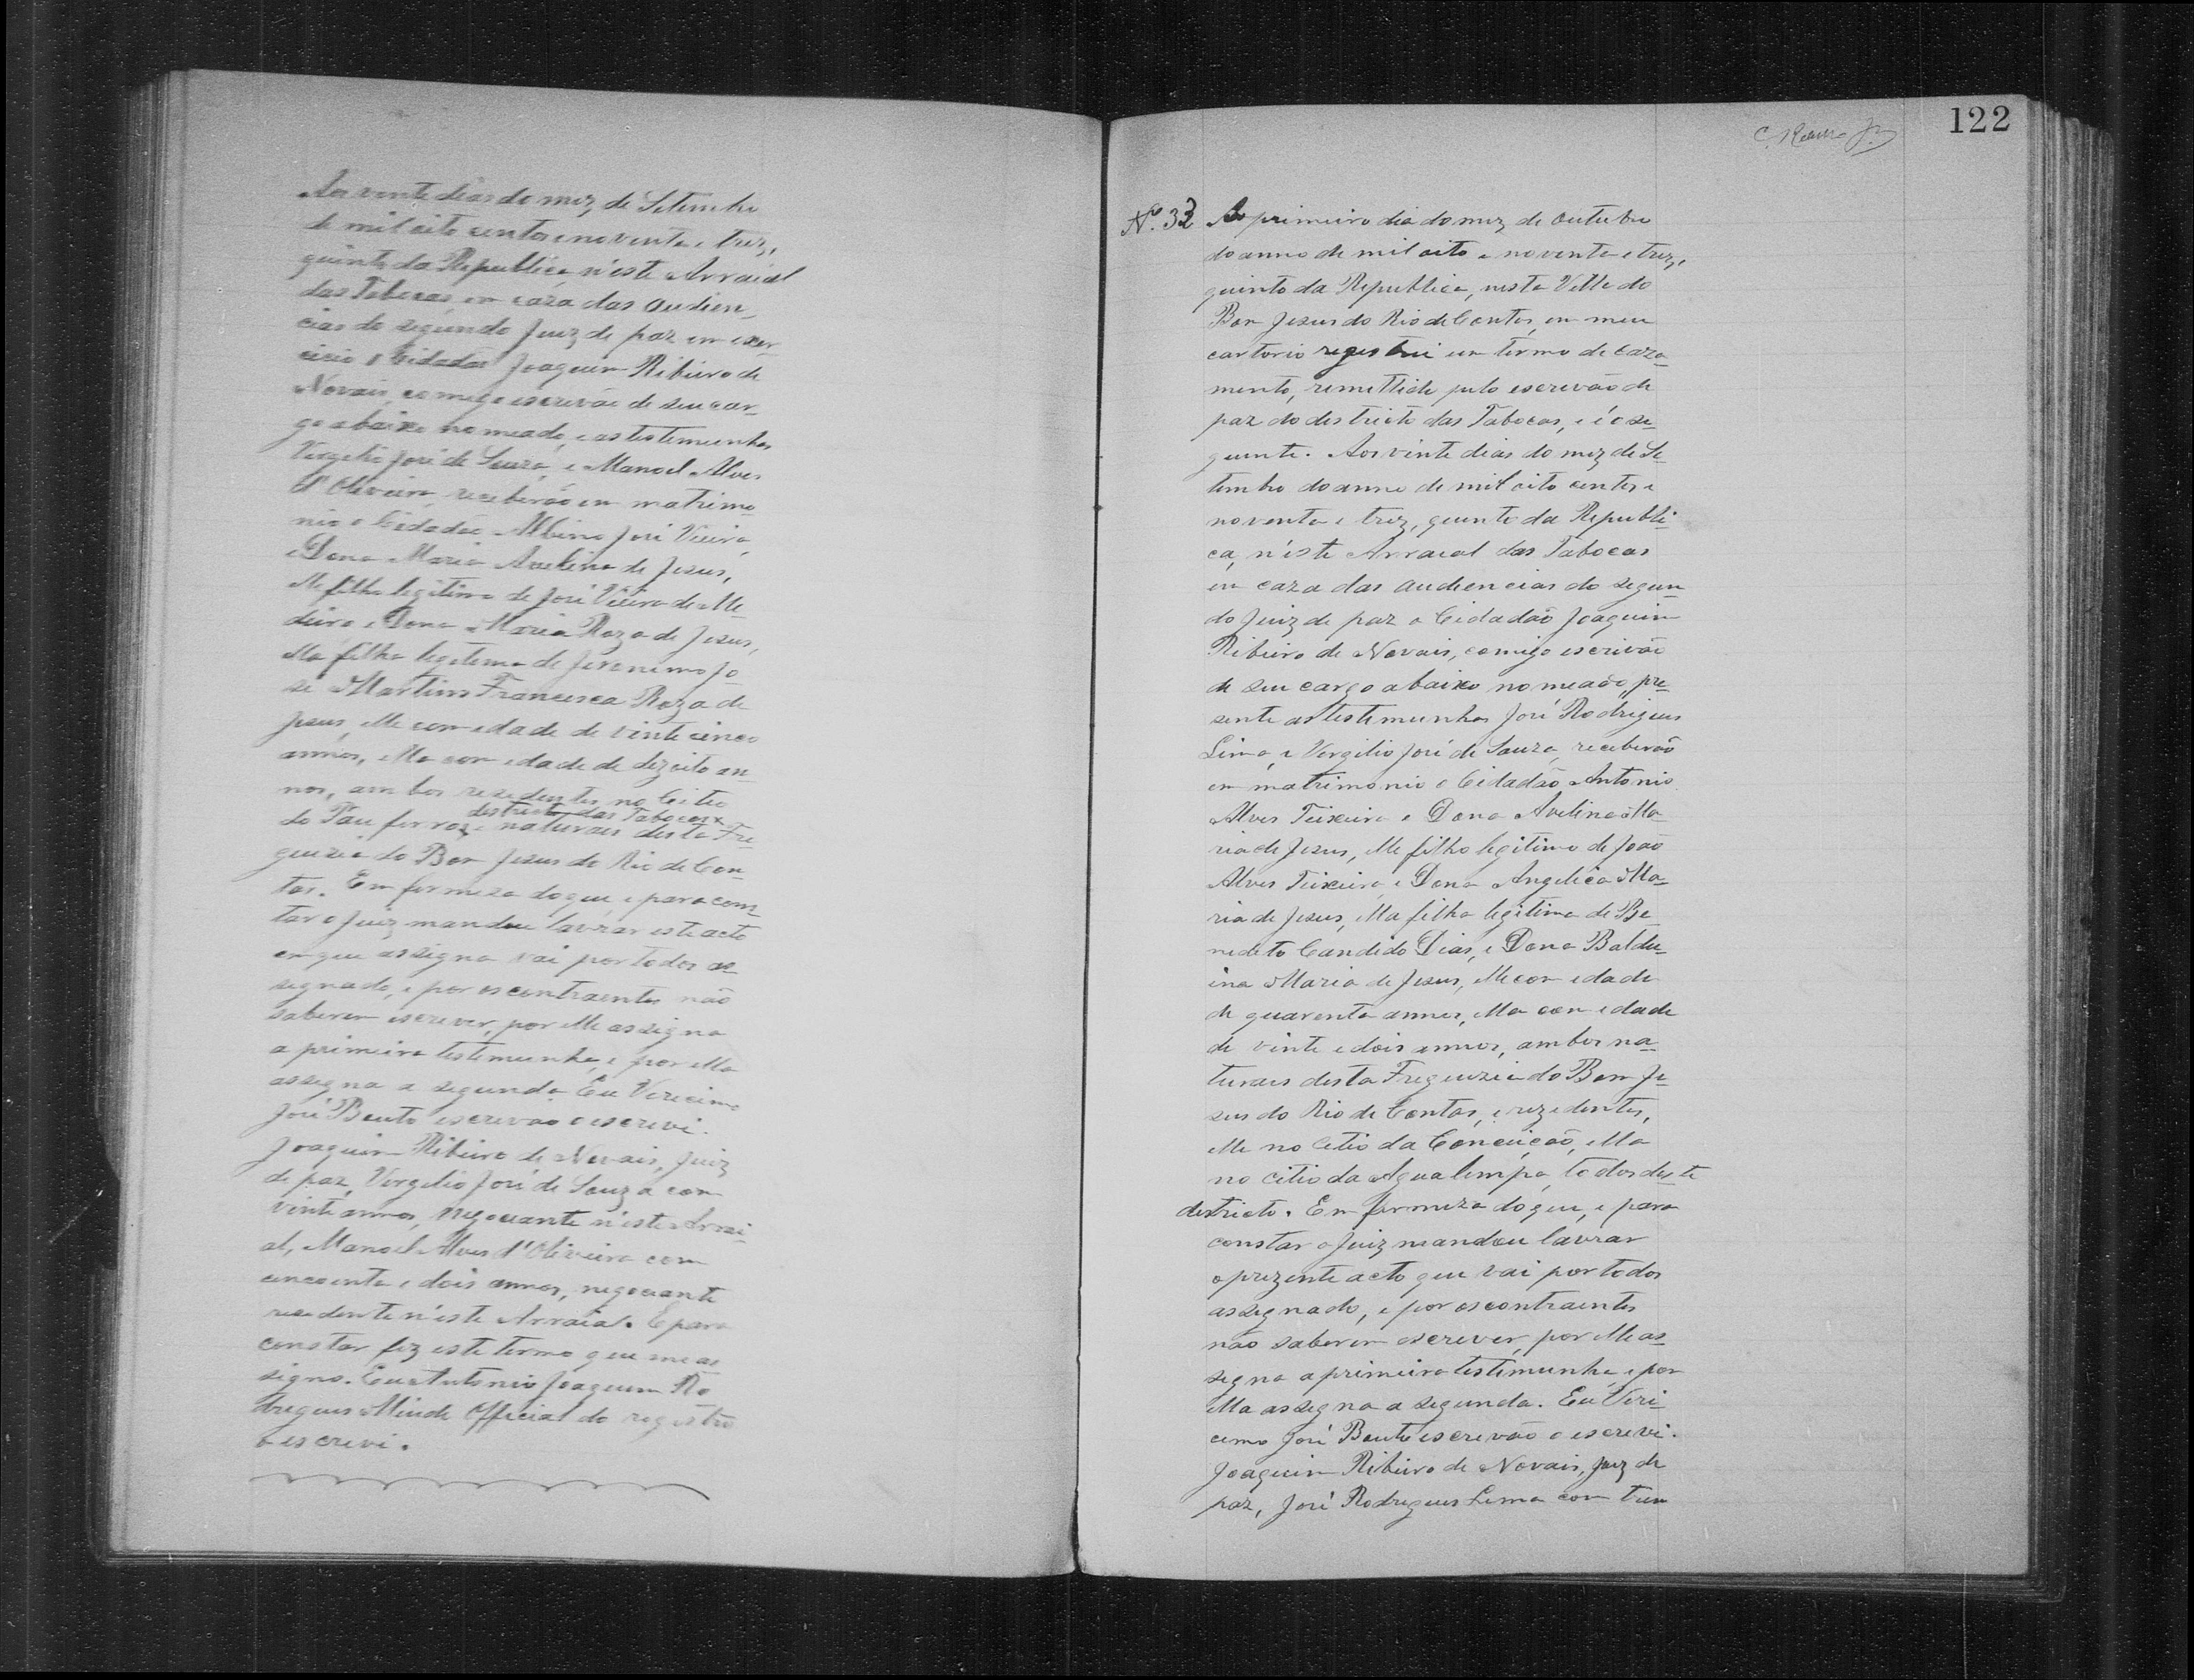 Aos vente dias do mez de Setembro
de mil oito centos e noventa e trez,
quinto da Republica, n'este Arraial
das Tabocas em caza das audien-
cias do segundo Juiz de paz em exer-
cicio o Cidadão Joaquim Ribeiro de
Novais, comigo escrivão de seu car-
go abaixo nomeado, e as testemunhas
Vergilio José de Souza, e Manoel Alves
d'Oliveira, receberão em matrimo-
nio o Cidadão Albino José Vieira,
e Dona Maria Avelina de Jesus,
elle filho legitimo de José Vieira de Me-
deiro e Dona Maria Roza de Jesus,
ella filha legitima de Jeronimo Jo-
sé Martins Francisca Roza de
Jesus, elle com edade de vinte cinco
annos, ella com edade de dezoito an-
nos, ambos rezedentes no Citio
destricto das Tabocas
do Páu ferro, e naturais desta Fre-
guezia do Bom Jesus do Rio de Con-
tas. Em firmeza do que, e para cons-
tar o juiz mandou lavrar este acto
em que assigna vai por todos as-
segnado, e por os contraentes não
saberem escrever, por elle assegna
a primeira testemunha, e por ella
assegna a segunda. Eu Verecimo
José Bento escrivão o escrevi.
Joaquim Ribeiro de Novais, Juiz
de paz, Vergilio José de Souza com
vinte annos, negociante n'este Arrai-
al, Manoel Alves d'Oliveira com
cincoenta e dois annos, negociante
rezedente n'este Arraial. E para
constar fiz este termo que me as-
signo. Eu Antonio Joaquim Ro-
drigues Official do registro
o escrevi.
122
Nº. 33 Ao primeiro dia do mez de Outubro
do anno de mil oito e noventa e trez,
quinto da Republica, nesta Villa do
Bom Jesus do Rio de Contas, em meu
cartorio regestrei um termo de caza-
mento, remettido pelo escrevão de
paz do destricto das Tabocas, e é o se-
guinte. Aos vinte dias do mez de Se-
tembro do anno de mil oito centos e
noventa e trez, quinto da Republi-
ca, n'este Arraial das Tabocas
em caza das audiencias do segun-
do Juiz de paz o Cidadão Joaquim
Ribeiro de Novais, comigo escrivão
de seu cargo abaixo nomeado, pre-
sente as testemunhas José Rodrigues
Lima, e Vergilio José de Souza, receberão
em matrimonio o Cidadão Antonio
Alves Teixeira e Dona Avelina Ma-
ria de Jesus, elle filho legitimo de João
Alves Teixeira, e Dona Angelica Ma-
ria de Jesus, ella filha legitima de Be-
nedeto Candido Dias, e Dona Baldu-
ina Maria de Jesus, elle com edade
de quarenta annos, ella com edade
de vinte e dois annos, ambos na-
turais desta Freguezia do Bom Je-
sus do Rio de Contas, e rezedentes,
elle no Citio da Conceição, ella
no citio da Agua limpa, todos deste
destricto. Em firmeza do que, e para
constar o Juiz mandou lavrar
o prezente acto que vai por todos
assegnado, e por os contraentes
não saberem escrever, por elle as-
segna a primeira testemunha, e por
ella assegna a segunda. Eu Veri-
cimo José Bento escrevão o escrevi.
Joaquim Ribeiro de Novais, Juiz de
paz, José Rodrigues Lima com trin